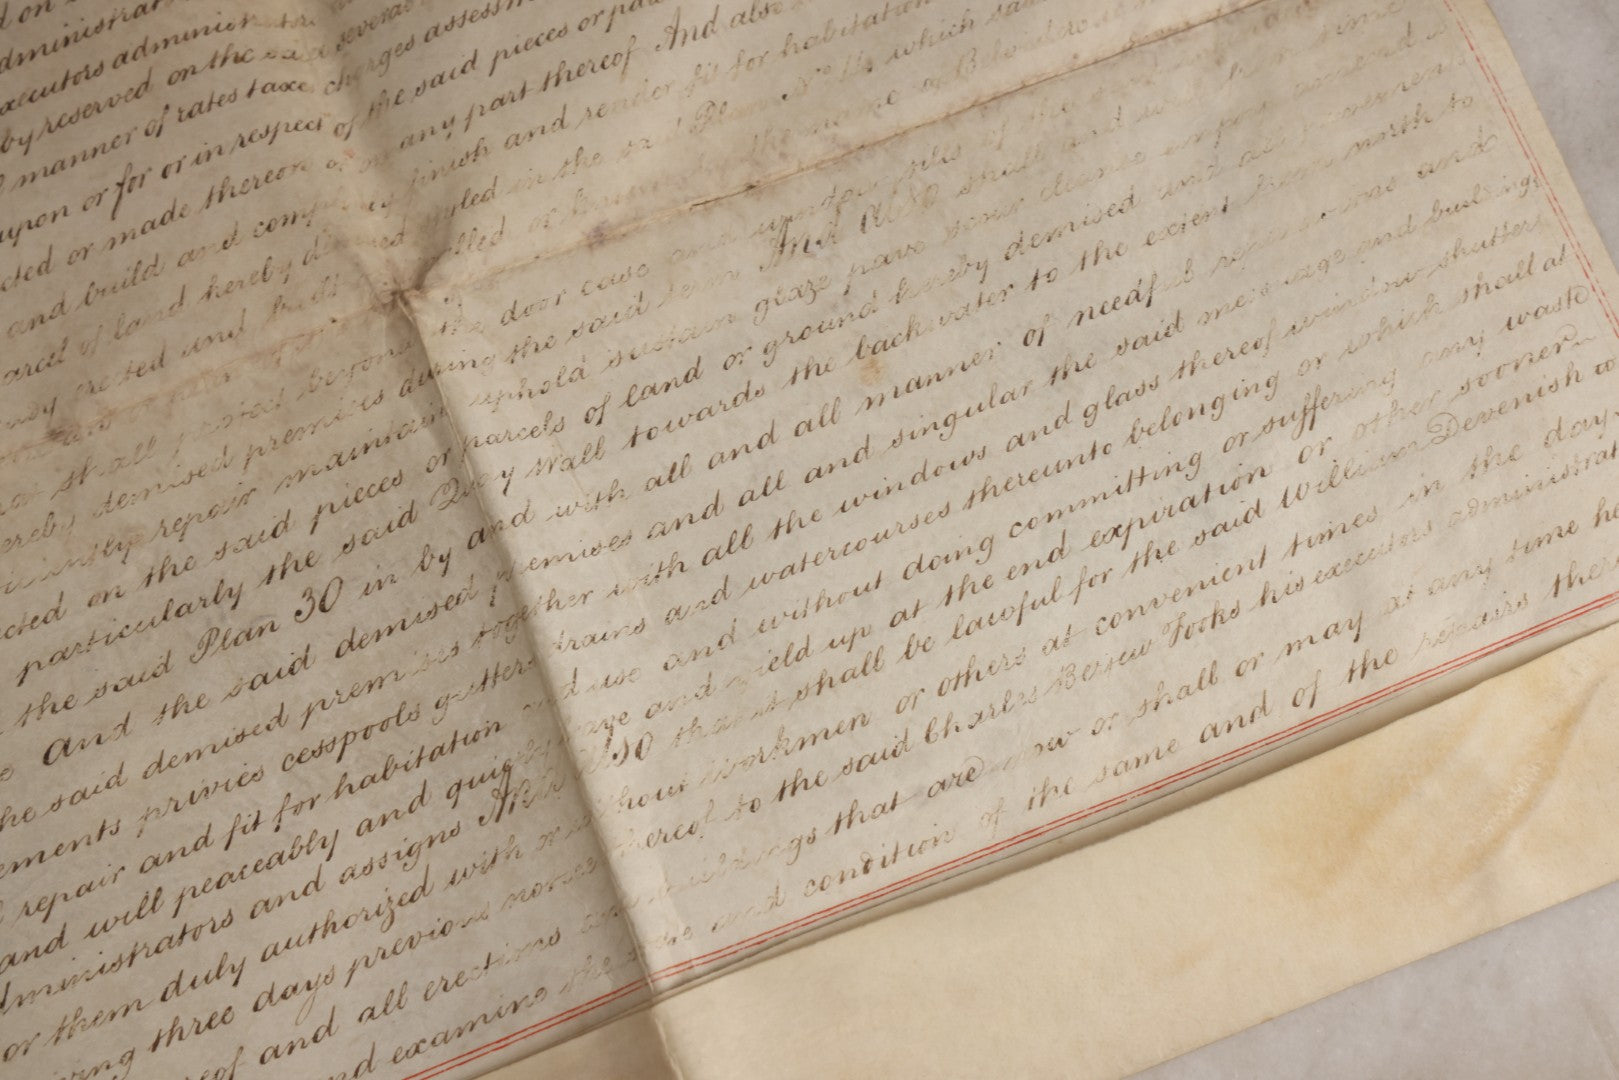 d on
dministrat
xecutors administr
by reserved on the said several
l manner of rates taxes charges assessm
upon or for or in respect of the said pieces or pa
cted or made thereon or on any part thereof And also
and build and completely finish and render fit for habitation
arcel of land hereby demised styled in the said Plan No 14 which said
erected and built called or known by the name of Belvidere
hat shall project beyond the door case and window sills of the
ereby demised premises during the said term And Also shall and will from time
iciently repair maintain uphold sustain glaze pave scour cleanse empty amend
cted on the said pieces or parcels of land or ground hereby demised and all pavements
particularly the said Quay wall towards the backwater to the extent shewn north to
the said Plan 30 in by and with all and all manner of needful reparations and
And the said demised premises and all and singular the said messuage and buildings
he said demised premises together with all the windows and glass thereof window shutters
ements privies cesspools gutters drains and watercourses thereunto belonging or which shall at
repair and fit for habitation and use and without doing committing or suffering any waste
and will peaceably and quietly leave and yield up at the end expiration or other sooner
dministrators and assigns And Also that it shall be lawful for the said William Devenish
or them duly authorized with or without workmen or others at convenient times in the day
ing three days previous notice thereof to the said Charles Fooks his executors administrat
reof and all erections and buildings that are now or shall or may at any time he
nd examining the state and condition of the same and of the repairs ther